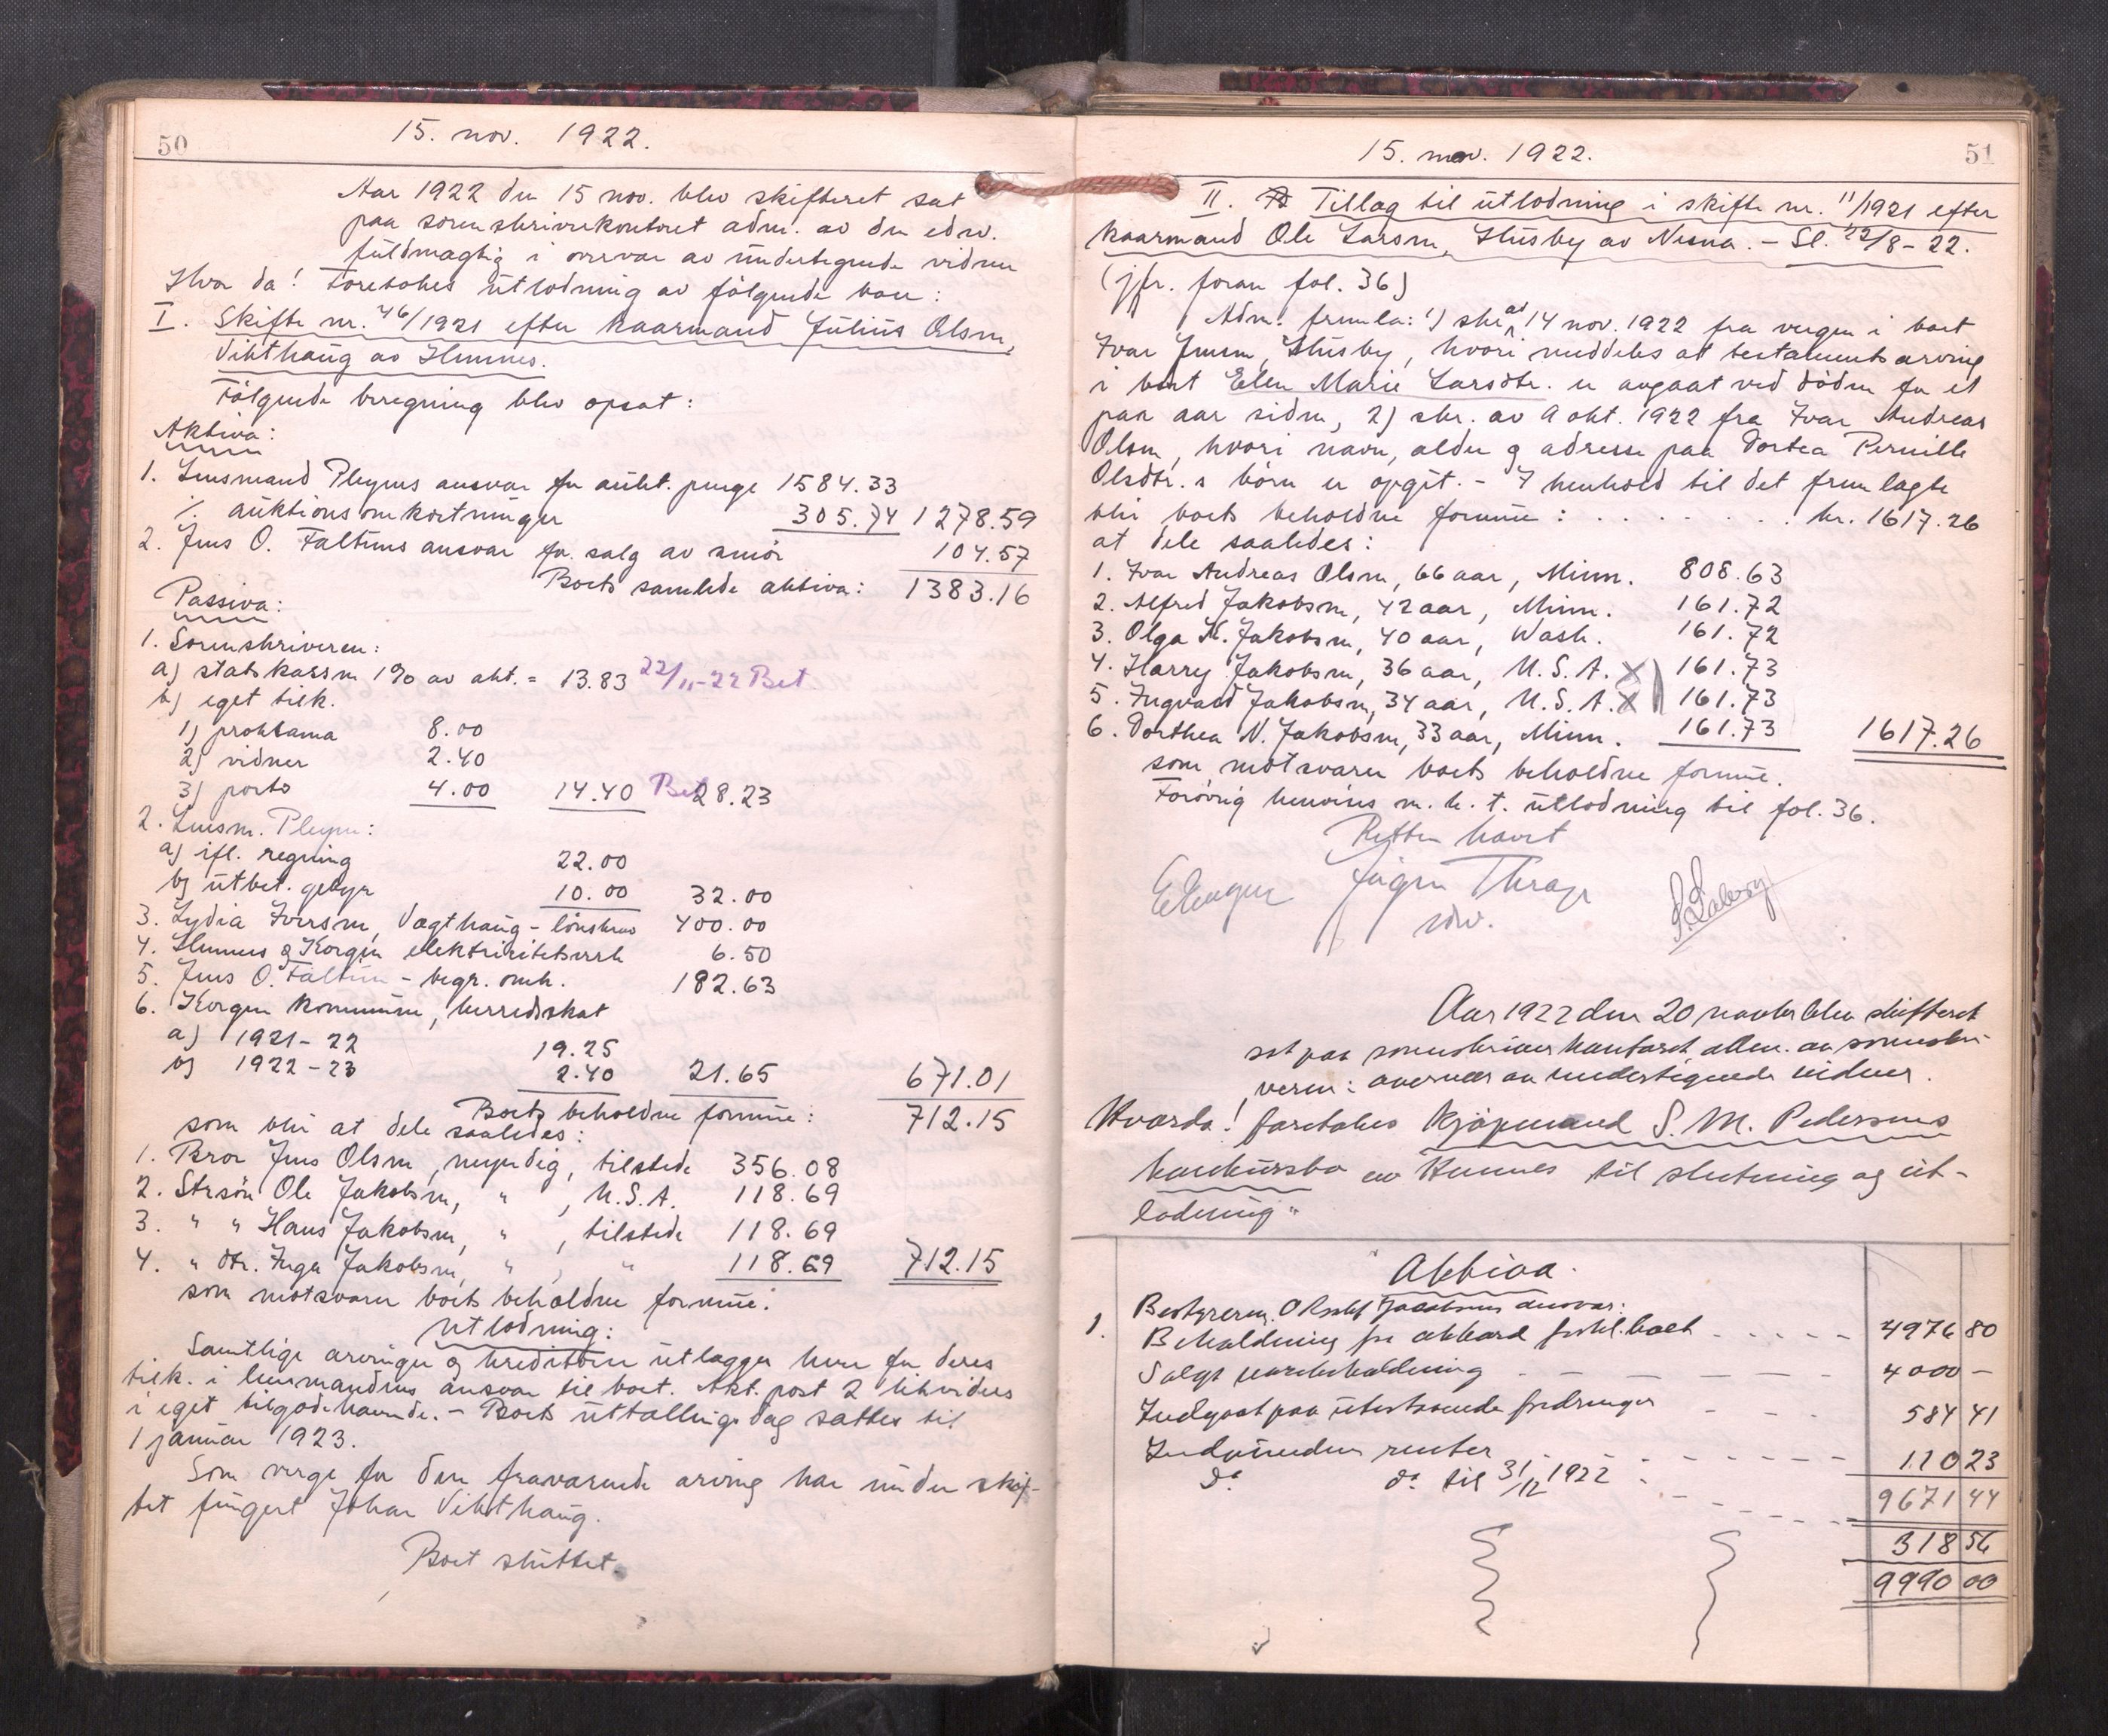 50
15. nov. 1922.
Aar 1922 den 15 nov. blev skifteret sat
paa sorenskriverkontoret adm. av den edsv.
fuldmægtig i overvær av undertegnede vidner
Hvor da! Foretokes utlodning av følgende boer:
I. Skifte nr. 46/1921 efter kaarmand Julius Olsen,
Vikthaug av Hemnes.
Følgende beregning blev opsat:
Aktiva:
1. Lensmand Pleyms ansvar for aukt. penge 1584.33
÷ auktionsomkostninger 305.74 1278.59
2. Jens O. Faltins ansvar for salg av smör 104.57
Boets samlede aktiva: 1383.16
Passiva:
1. Sorenskriveren:
a) statskassen 1% av akt. = 13.83 22/11-22 Bet
b) eget tilk.
1) proklama 8.00
2) vidner 2.40
3) porto 4.00 14.40 Bet 28.23
2. Lensm. Pleym:
a) ifl. regning 22.00
b) utbet. gebyr 10.00 32.00
3. Lydia Iversen, Vagthaug - lönskrav 400.00
4. Hemnes & Korgen elektricitetsverk 6.50
5. Jens O. Faltin - begr. omk. 182.63
6. Korgen kommune, herredsskat
a) 1921-22 19.25
b) 1922-23 2.40 21.65 671.01
Boets beholdne formue: 712.15
som blir at dele saaledes:
1. Bror Jens Olsen, myndig, tilstede 356.08
2. Strsön Ole Jakobsen, " , U.S.A. 118.69
3. " " Hans Jakobsen, " , tilstede 118.69
4. " dtr. Inga Jakobsen, " , " 118.69 712.15
som motsvarer boets beholdne formue.
Utlodning:
Samtlige arvinger og kreditorer utlægges hver for deres
tilk. i lensmandens ansvar til boet. Akt. post 2 likvideres
i eget tilgodehavende. - Boets uttællingsdag sættes til
1 januar 1923.
Som verge for den fraværende arving har under skif-
tet fungert Johan Vikthaug.
Boet sluttet.
51
15. nov. 1922.
II. Tillæg til utlodning i skifte nr. 11/1921 efter
kaarmand Ole Larsen, Husby av Nesna. - Sl. 22/8-22.
(jfr. foran fol. 36)
Adm. fremla: 1) skr. av 14 nov. 1922 fra vergen i boet
Ivar Jensen, Husby, hvori meddeles at testamentsarving
i boet Elen Marie Larsdtr. er avgaat ved döden for et
par aar siden, 2) skr. av 9 okt. 1922 fra Ivar Andreas
Olsen, hvori navn, alder og adresse paa Dortea Pernille
Olsdtr.s börn er opgit. - I henhold til det fremlagte
blir boets beholdne formue: . . . . . . . . kr. 1617.26
at dele saaledes:
1. Ivar Andreas Olsen, 66 aar, Minn. 808.63
2. Alfred Jakobsen, 42 aar, Minn. 161.72
3. Olga K. Jakobsen, 40 aar, Wash. 161.72
4. Harry Jakobsen, 36 aar, U.S.A. X 161.73
5. Ingvald Jakobsen, 34 aar, U.S.A. X 161.73
6. Dorthea N. Jakobsen, 33 aar, Minn. 161.73 1617.26
som motsvarer boets beholdne formue.
Forövrig henvises m. h. t. utlodning til fol. 36.
Retten hævet
Jörgen Thrap
edsv.
Aar 1922 den 20 novbr blev skifteret
sat paa sorenskriverkontoret adm. av sorenskri-
veren i overvær av undertegnede vidner.
Hvorda! foretokes Kjöpmand S. M. Pedersens
konkursbo av Hemnes til slutning og ut-
lodning"
Aktiva.
1. Bestyreren O Jacobsens ansvar:
Beholdning fra akkord boet - - - - - 4976 80
Solgt varebeholdning - - - - - 4000 -
Indgaat paa utestaaende fordringer - - - 584 41
Indvundne renter - - - - - 110 23
9671 44
do do til 31/12 1922 - - - - 318 56
9990 00